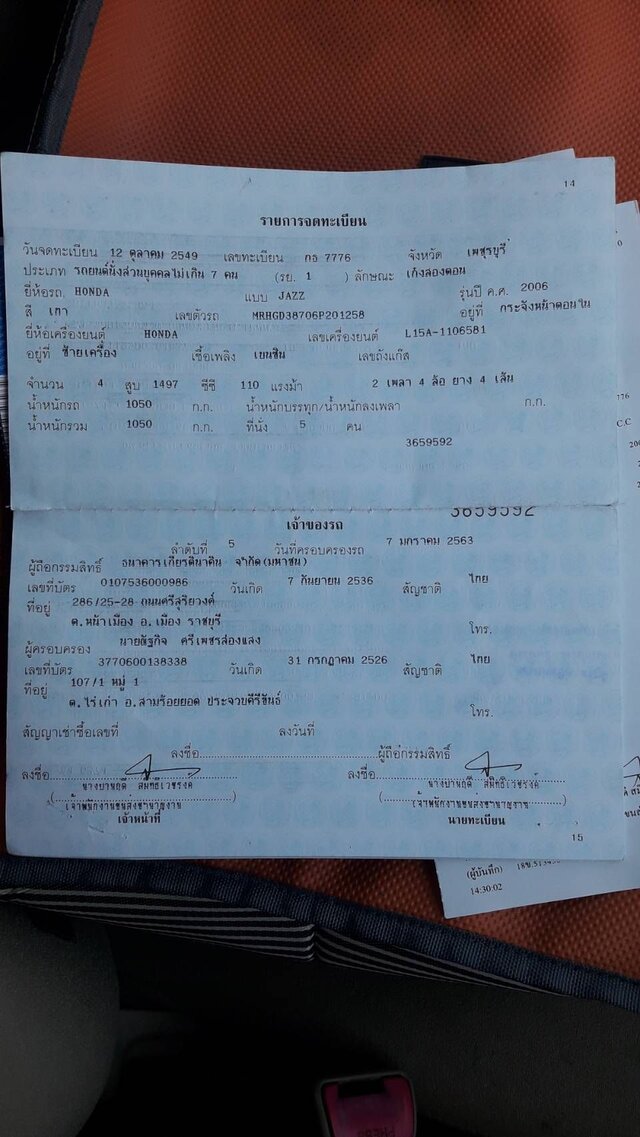 14
รายการจดทะเบียน
วันจดทะเบียน 12 ตุลาคม 2549 เลขทะเบียน กธ 7776 จังหวัด เพชรบุรี
ประเภท รถยนต์นั่งส่วนบุคคลไม่เกิน 7 คน (รย. 1 ) ลักษณะ เก๋งสองตอน
ยี่ห้อรถ HONDA แบบ JAZZ รุ่นปี ค.ศ. 2006
สี เทา เลขตัวรถ MRHGD38706P201258 อยู่ที่ กระจังหน้าตอนใน
ยี่ห้อเครื่องยนต์ HONDA เลขเครื่องยนต์ L15A-1106581
อยู่ที่ ซ้ายเครื่อง เชื้อเพลิง เบนซิน เลขถังแก๊ส
จำนวน 4 สูบ 1497 ซีซี 110 แรงม้า 2 เพลา 4 ล้อ ยาง 4 เส้น
น้ำหนักรถ 1050 ก.ก. น้ำหนักบรรทุก/น้ำหนักลงเพลา ก.ก.
น้ำหนักรวม 1050 ก.ก. ที่นั่ง 5 คน
3659592
3659592
เจ้าของรถ
ลำดับที่ 5 วันที่ครอบครองรถ 7 มกราคม 2563
ผู้ถือกรรมสิทธิ์ ธนาคารเกียรตินาคิน จำกัด(มหาชน)
เลขที่บัตร 0107536000986 วันเกิด 7 กันยายน 2536 สัญชาติ ไทย
ที่อยู่ 286/25-28 ถนนศรีสุริยวงศ์
ต.หน้าเมือง อ.เมือง ราชบุรี โทร.
ผู้ครอบครอง นายณัฐกิจ ศรีเพชรส่องแสง
เลขที่บัตร 3770600138338 วันเกิด 31 กรกฎาคม 2526 สัญชาติ ไทย
ที่อยู่ 107/1 หมู่ 1
ต.ไร่เก่า อ.สามร้อยยอด ประจวบคีรีขันธ์ โทร.
สัญญาเช่าซื้อเลขที่ ลงวันที่
ลงชื่อ ผู้ถือกรรมสิทธิ์
ลงชื่อ ลงชื่อ
เจ้าพนักงานขนส่งชำนาญงาน เจ้าพนักงานขนส่งชำนาญงาน
เจ้าหน้าที่ นายทะเบียน
15
(ผู้บันทึก)
14:30:02